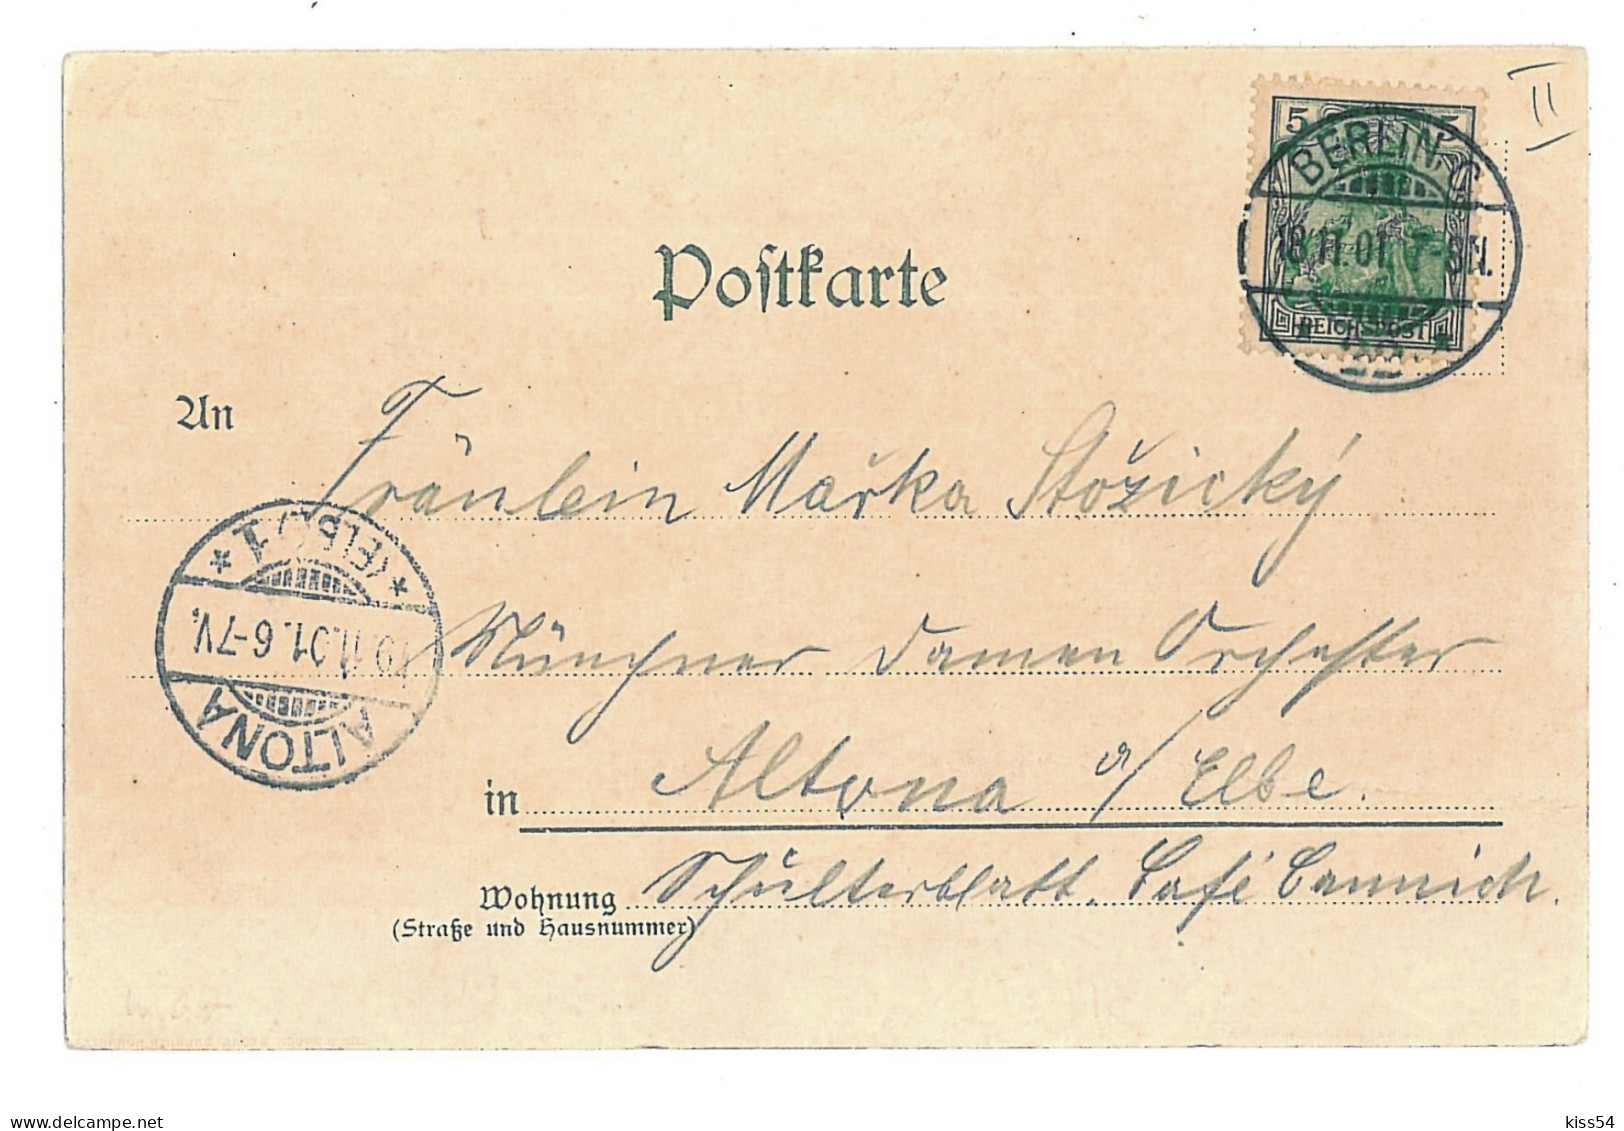 II
5 5
BERLIN C
18.11.01. 7-8N.
REICHSPOST
Postkarte
An Fräulein Mařka Stožický
(ELBE) 1
19.11.01. 6-7V.
ALTONA
Münchner Damen Orchester
in Altona a/ Elbe.
Wohnung Schulterblatt. Café Cannich.
(Straße und Hausnummer)
delcampe.net
kiss54